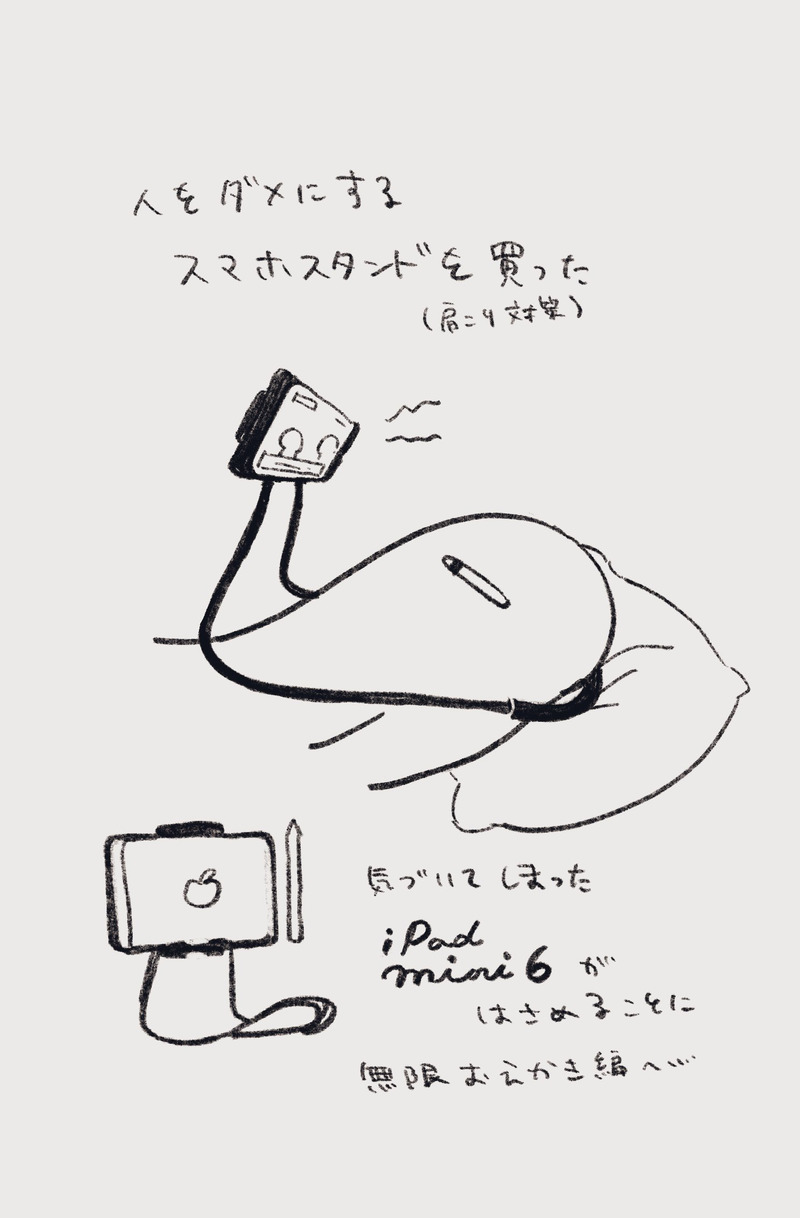 人をダメにする
スマホスタンドを買った
(肩こり対策)
気づいてしまった
iPad
mini6 が
はさめることに
無限おえかき編へ…